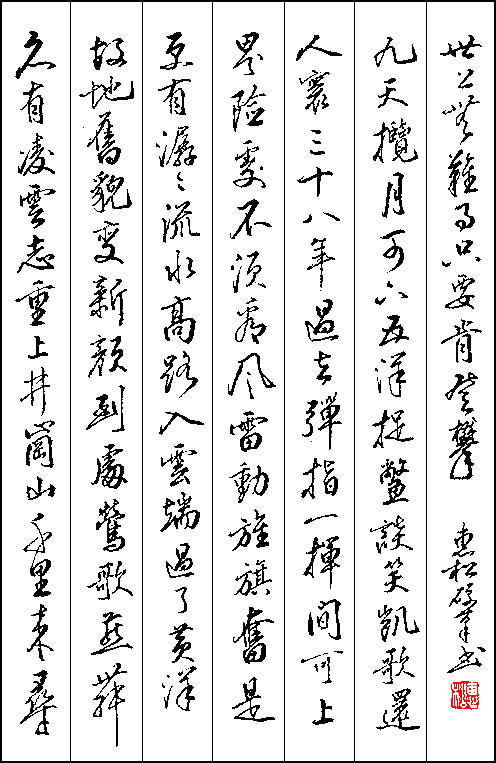 久有凌雲志重上井崗山千里来尋
故地舊貌变新顔到處鶯歌燕舞
更有潺々流水高路入雲端過了黄洋
界險處不須看风雷動旌旗奮是
人寰三十八年過去彈指一揮間可上
九天攬月可下五洋捉鱉談笑凱歌還
世上无難事只要肯登攀 惠松硬筆书